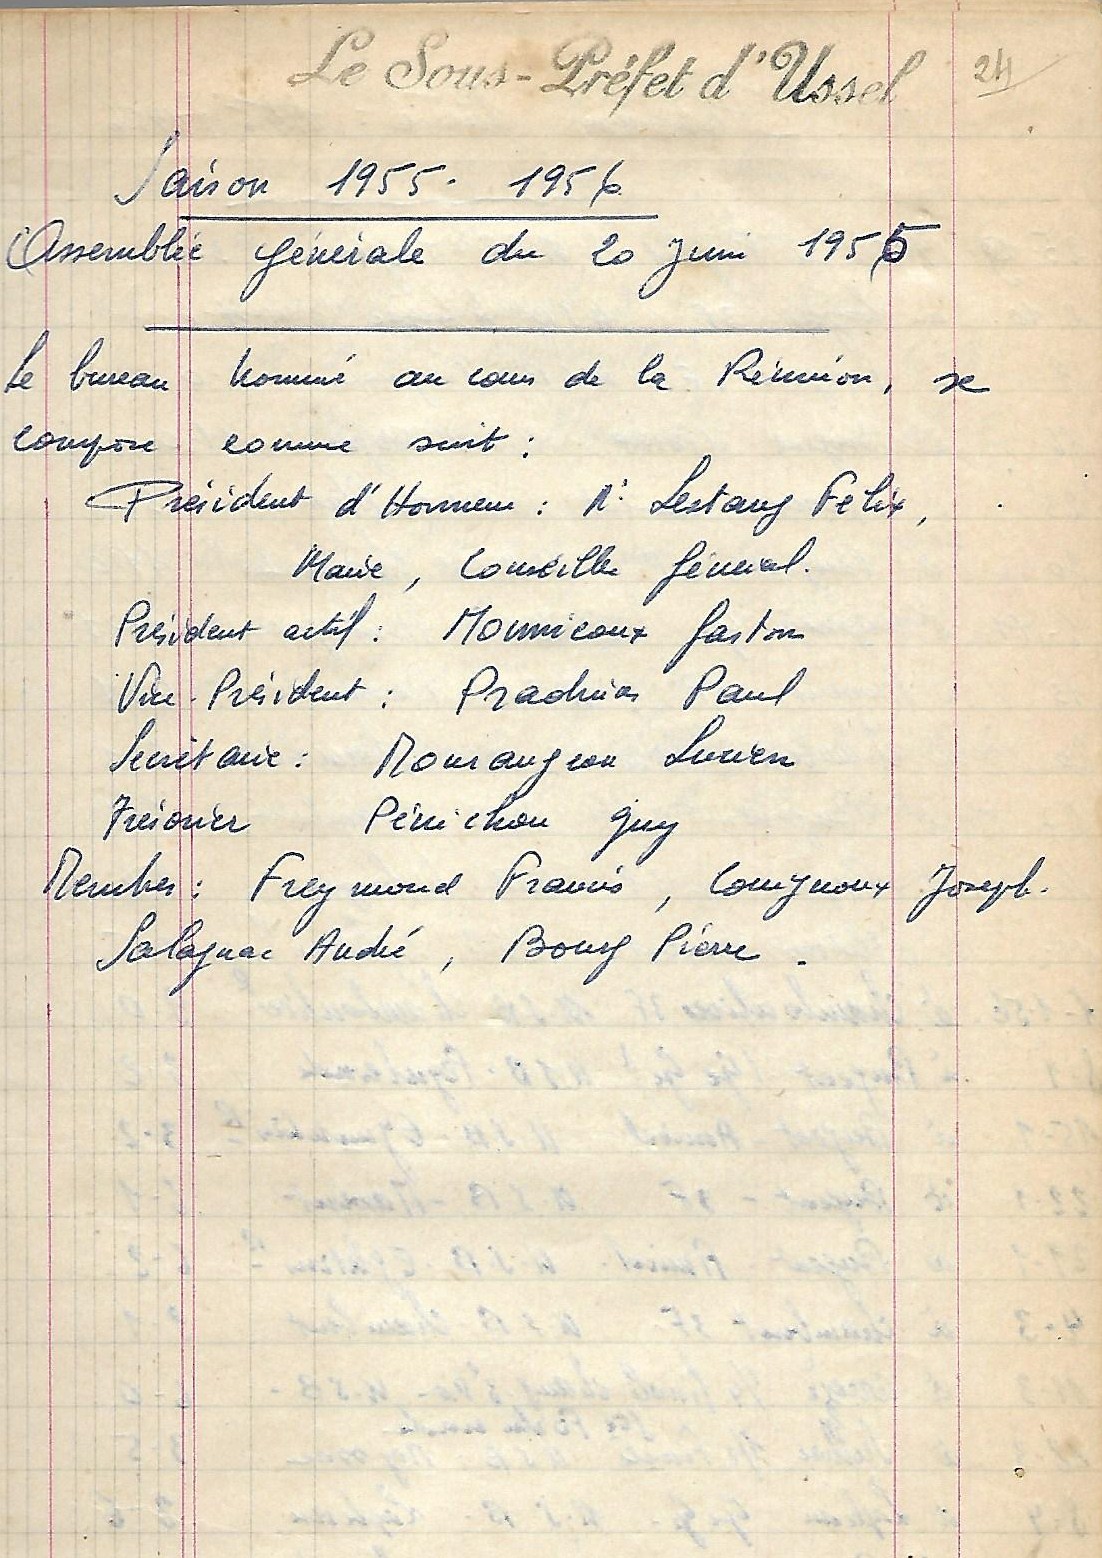 Le Sous-Préfet d'Ussel 24
Saison 1955-1956
Assemblée générale du 20 Juin 1955
Le bureau nommé au cours de la Réunion, se
compose comme suit :
Président d'Honneur : Mr Lestang Felix,
Maire, Conseiller Général.
Président actif : Monnicoux Gaston
Vice-Président : Pradinas Paul
Secrétaire : Mourangeon Lucien
Trésorier Pénichon Guy
Membres : Freymond Francis, Couignoux Joseph.
Salagnac André, Bourg Pierre.